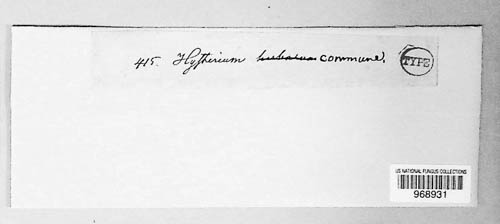 415. Hysterium commune,
TYPE
US NATIONAL FUNGUS COLLECTIONS
968931